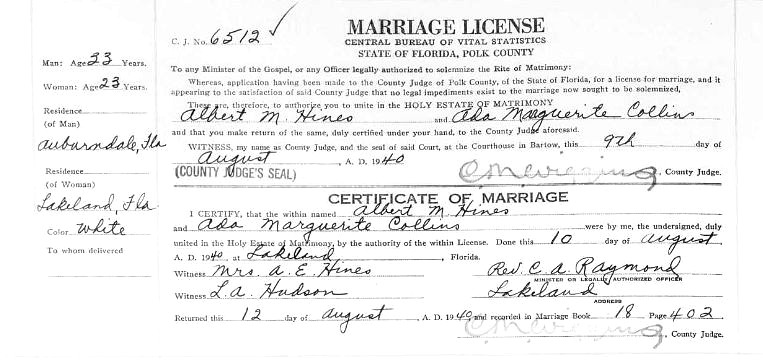 MARRIAGE LICENSE
C. J. No. 6512 ✓
CENTRAL BUREAU OF VITAL STATISTICS
STATE OF FLORIDA, POLK COUNTY
Man: Age 23 Years.
Woman: Age 23 Years.
Residence
(of Man)
Auburndale, Fla
Residence
(of Woman)
Lakeland, Fla
Color White
To whom delivered
To any Minister of the Gospel, or any Officer legally authorized to solemnize the Rite of Matrimony:
Whereas, application having been made to the County Judge of Polk County, of the State of Florida, for a license for marriage, and it
appearing to the satisfaction of said County Judge that no legal impediments exist to the marriage now sought to be solemnized,
These are, therefore, to authorize you to unite in the HOLY ESTATE OF MATRIMONY
Albert M. Hines and Ada Marguerite Collins
and that you make return of the same, duly certified under your hand, to the County Judge aforesaid.
WITNESS, my name as County Judge, and the seal of said Court, at the Courthouse in Bartow, this 9th day of
August, A. D. 1940
(COUNTY JUDGE'S SEAL) C M Wiggins, County Judge.
CERTIFICATE OF MARRIAGE
I CERTIFY, that the within named Albert M. Hines
and Ada Marguerite Collins were by me, the undersigned, duly
united in the Holy Estate of Matrimony, by the authority of the within License. Done this 10 day of August,
A. D. 1940, at Lakeland, Florida.
Witness Mrs. A. E. Hines Rev. C. A. Raymond
MINISTER OR LEGALLY AUTHORIZED OFFICER
Witness L. A. Hudson Lakeland
ADDRESS
Returned this 12 day of August, A. D. 1940 and recorded in Marriage Book 18 Page 402
C M Wiggins, County Judge.